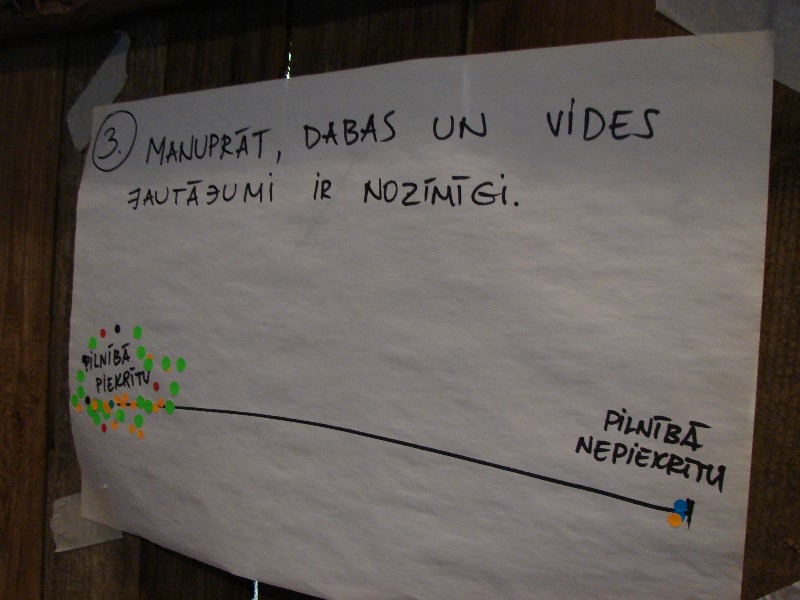 3. MANUPRĀT, DABAS UN VIDES
JAUTĀJUMI IR NOZĪMĪGI.
PILNĪBĀ
PIEKRĪTU
PILNĪBĀ
NEPIEKRĪTU